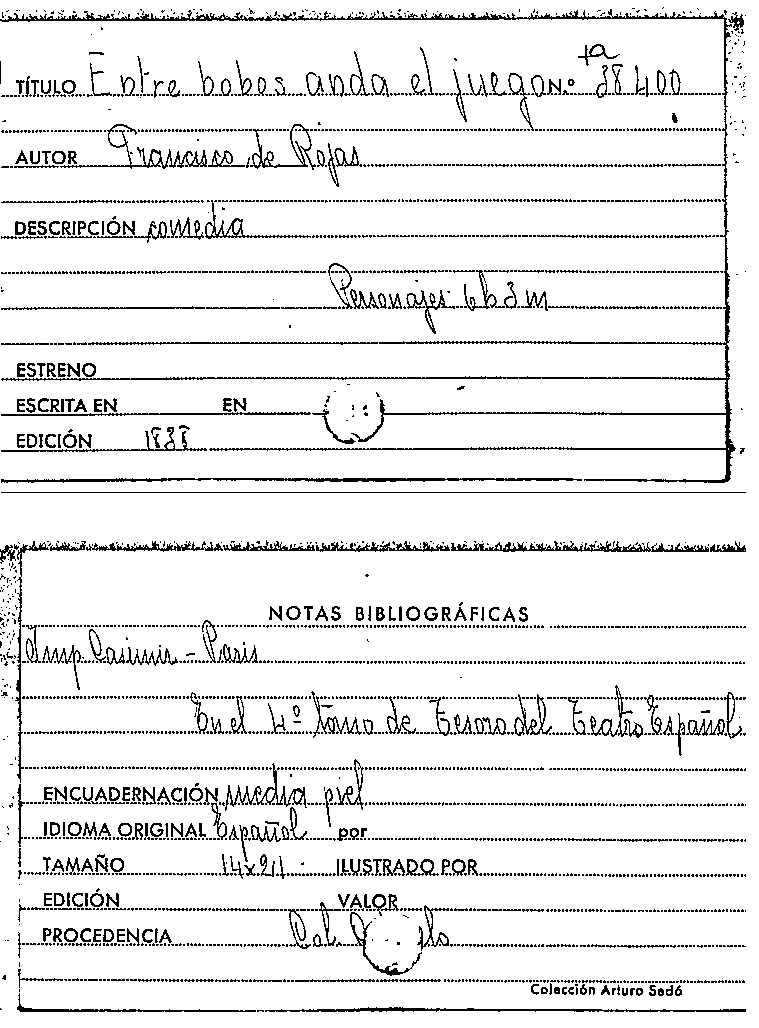 ta
TÍTULO Entre bobos anda el juego N.º 38400
AUTOR Francisco de Rojas
DESCRIPCIÓN comedia
Personajes 6 h 3 m
ESTRENO
ESCRITA EN EN
EDICIÓN 1838
NOTAS BIBLIOGRÁFICAS
Imp Casimir - Paris
En el 4º tomo de Tesoro del Teatro Español
ENCUADERNACIÓN media piel
IDIOMA ORIGINAL Español por
TAMAÑO 14x21 ILUSTRADO POR
EDICIÓN VALOR
PROCEDENCIA Col.
Colección Arturo Sedó